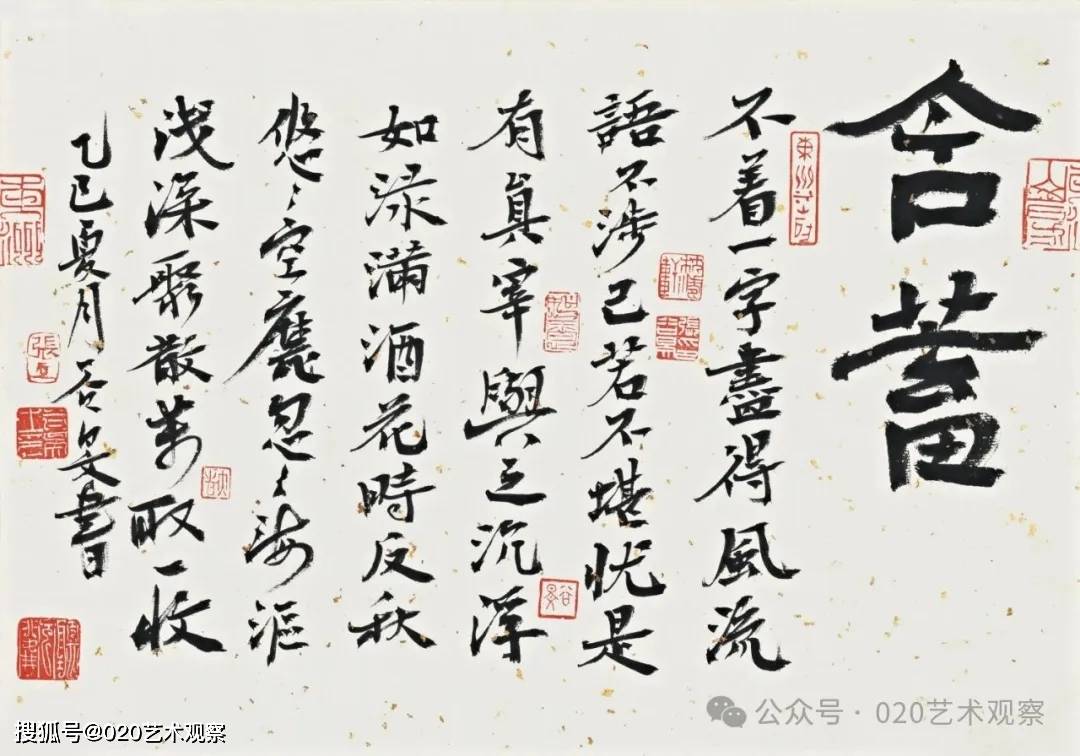 含蓄
不着一字盡得風流
語不涉己若不堪忧是
有真宰與之沉浮
如渌滿酒花時反秋
悠〻空塵忽〻海漚
浅深聚散萬取一收
乙巳夏月谷文書
公众号 · 020艺术观察
搜狐号@020艺术观察